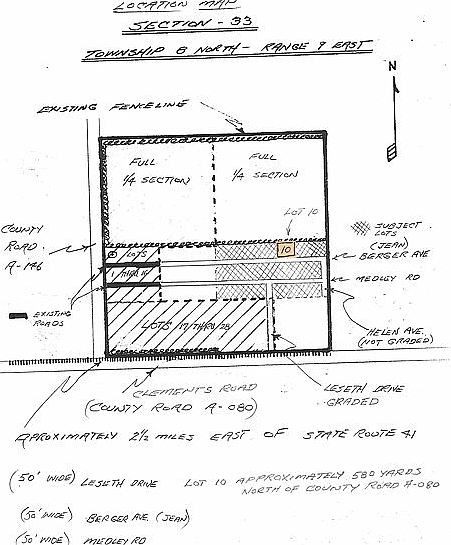 LOCATION MAP
SECTION - 33
TOWNSHIP 8 NORTH - RANGE 9 EAST
N
EXISTING FENCELINE
FULL
1/4 SECTION
FULL
1/4 SECTION
LOT 10
10
COUNTY
ROAD
A-146
LOTS
1 THRU 16
SUBJECT
LOTS
(JEAN)
BERGER AVE
MEDLEY RD
EXISTING
ROADS
LOTS 17 THRU 28
HELEN AVE.
(NOT GRADED)
CLEMENTS ROAD
(COUNTY ROAD A-080)
LESETH DRIVE
GRADED
APROXIMATELY 2 1/2 MILES EAST OF STATE ROUTE 41
(50' WIDE) LESETH DRIVE LOT 10 APPROXIMATELY 580 YARDS
NORTH OF COUNTY ROAD A-080
(50' WIDE) BERGER AVE. (JEAN)
(50' WIDE) MEDLEY RD